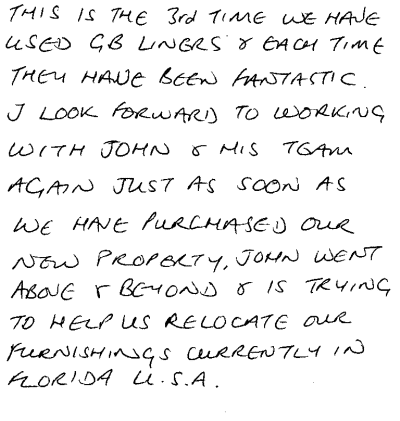 THIS IS THE 3rd TIME WE HAVE
USED GB LINERS & EACH TIME
THEY HAVE BEEN FANTASTIC.
I LOOK FORWARD TO WORKING
WITH JOHN & HIS TEAM
AGAIN JUST AS SOON AS
WE HAVE PURCHASED OUR
NEW PROPERTY, JOHN WENT
ABOVE & BEYOND & IS TRYING
TO HELP US RELOCATE OUR
FURNISHINGS CURRENTLY IN
FLORIDA U.S.A.